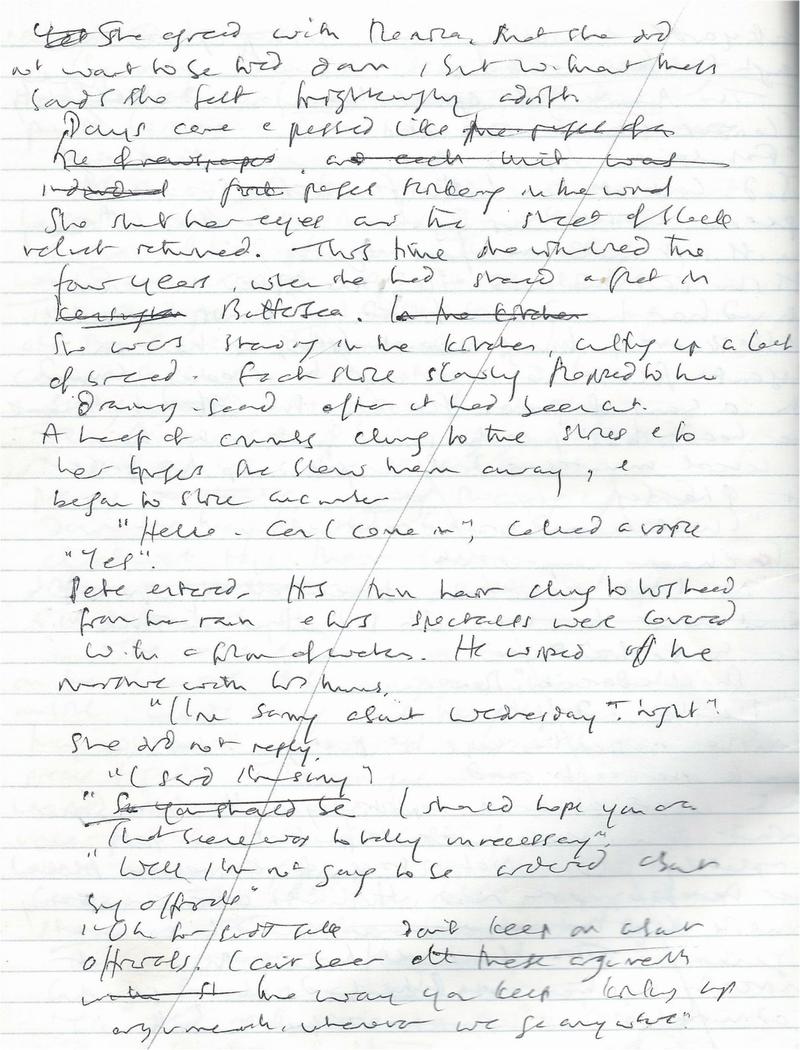 Yet She agreed with Monica, that she did
not want to be tied down, but without these
bonds she felt frighteningly adrift.
Days came & passed like the pages of a
the of newspaper, and each unit was
individual pages fluttering in the wind
She shut her eyes and the sheet of black
velvet returned. This time she the
four years, when she had shared a flat in
Kensington Battersea. In the kitchen
She was standing in the kitchen, cutting up a loaf
of bread. Each slice slowly flopped to the
board after it had been cut.
A heap of crumbs clung to the slices & to
her fingers, she blew them away, &
began to slice cucumber
"Hello - Can I come in", called a voice
"Yes".
Pete entered. His thin hair clung to his head
from the rain & his spectacles were covered
with a film of water. He wiped off the
moisture with his
"I'm sorry about Wednesday night".
She did not reply.
"I said I'm sorry"
"So you should be I should hope you are.
That scene was totally unnecessary".
"Well I'm not going to be ordered about
by officials"
"Oh for don't keep on about
officials. I can't bear all these arguments
the way you keep kicking up
arguments, wherever we go anywhere".